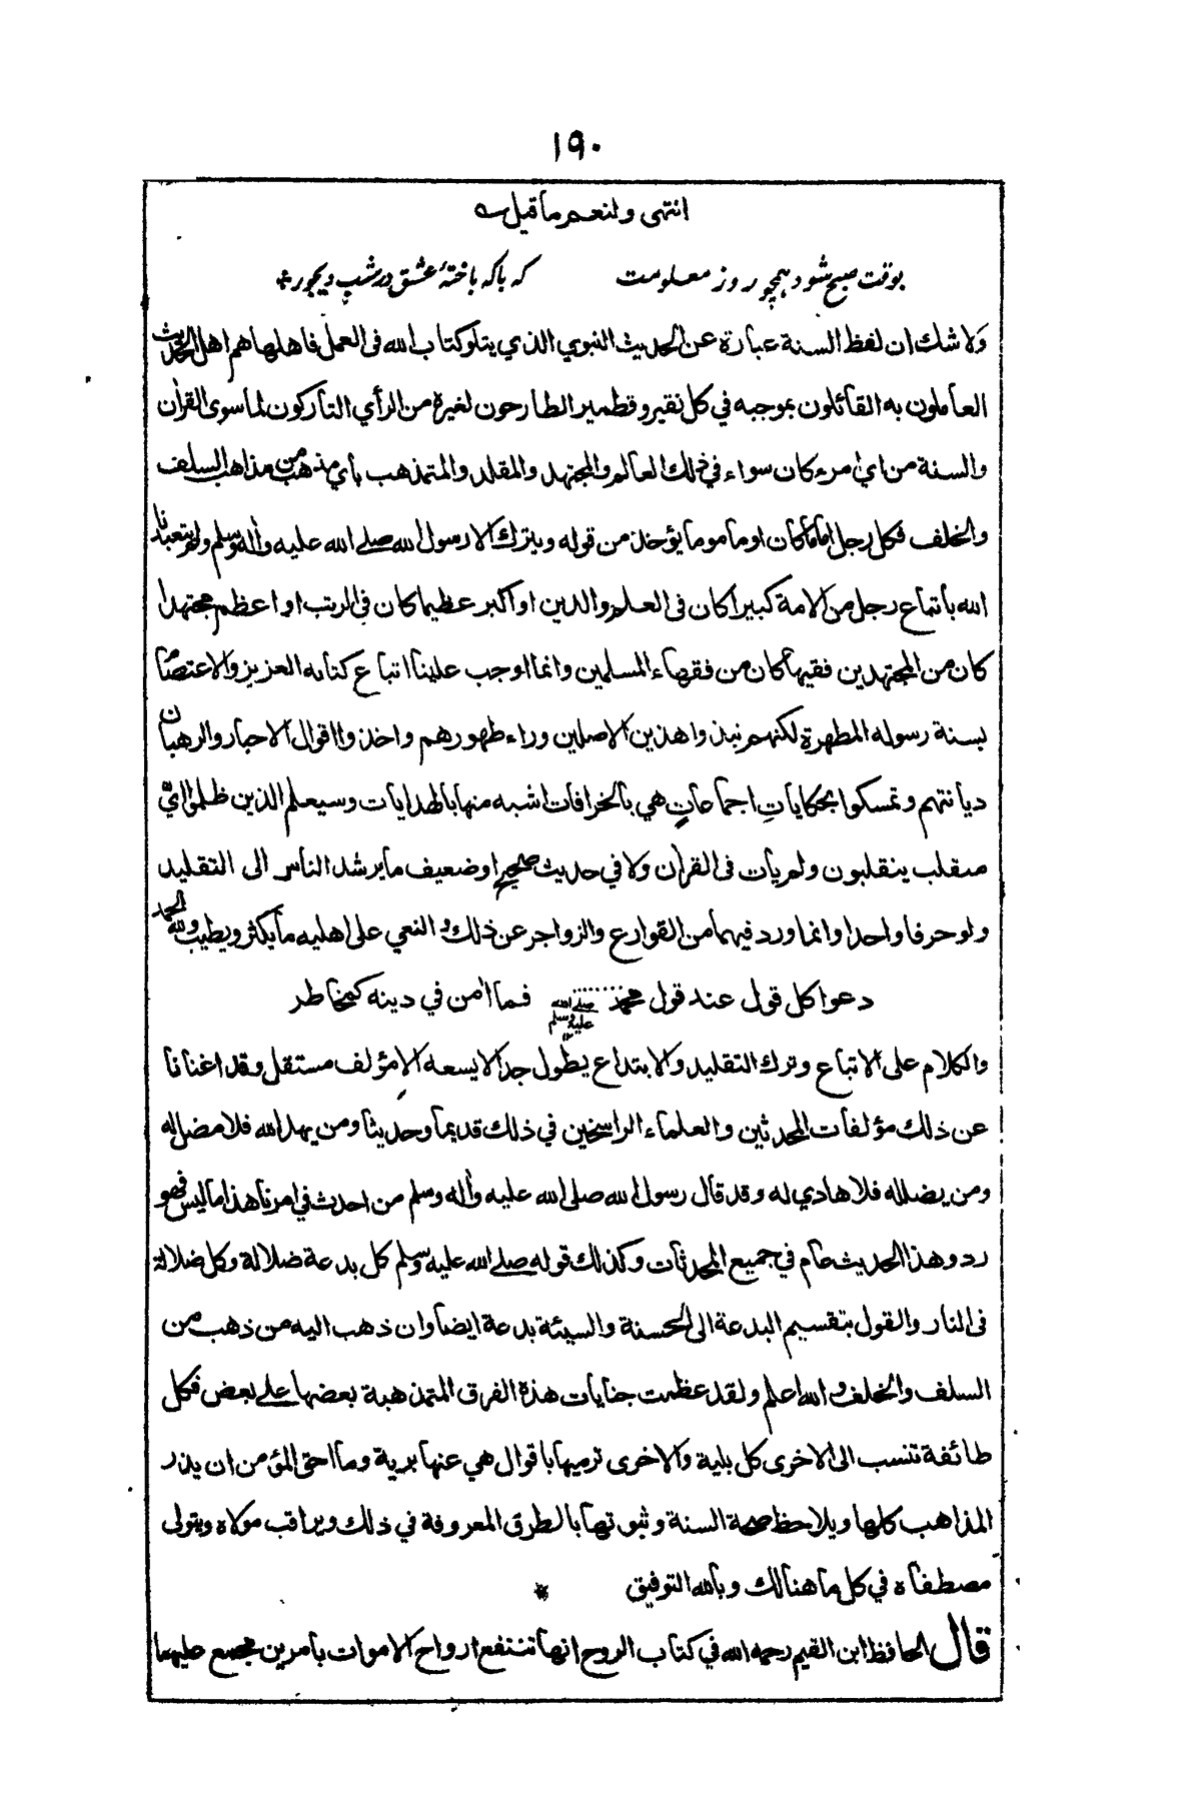 ١٩٠
انتهى ولنعم ما قيل ؎
بوقت صبح شود همچو روز معلومت که باکه باختۀ عشق در شب دیجور*
ولا شك ان لفظ السنة عبارة عن الحديث النبوي الذي يتلو كتاب الله فى العمل فاهلها هم اهل الحديث
العاملون به القائلون بموجبه في كل نقير وقطمير الطارحون لغيرة من الرأي التاركون لما سوى القرأن
والسنة من اي امرء كان سواء في ذلك العالم والمجتهد والمقلد والمتمذهب بأي مذهب من مذاهب السلف
والخلف فكل رجل اماما كان او ماموما يؤخذ من قوله ويترك الا رسول الله صلى الله عليه وأله وسلم ولم يتعبدنا
الله باتباع رجل من الامة كبيرا كان فى العلم والدين او اكبر عظيما كان فى الرتب او اعظم مجتهدا
كان من المجتهدين فقيها كان من فقهاء المسلمين وانما اوجب علينا اتباع كتابه العزيز والاعتصام
بسنة رسوله المطهرة لكنهم نبذوا هذين الاصلين وراء ظهورهم واخذوا اقوال الاحبار والرهبان
ديانتهم وتمسكوا بحكاياتِ اجماعاتٍ هي بالخرافات اشبه منها بالهدايات وسيعلم الذين ظلموا ايّ
منقلب ينقلبون ولم يأت فى القرأن ولا في حديث صحيح او ضعيف ما يرشد الناس الى التقليد
ولو حرفا واحدا وانما ورد فيهما من القوارع والزواجر عن ذلك والنعي على اهليه ما يكثر ويطيب ولله الحمد
دعوا كل قول عند قول محمد صلى الله عليه وسلم فما أمن في دينه كمخاطر
والكلام على الاتباع وترك التقليد والابتداع يطول جدا لا يسعه الا مؤلف مستقل وقد اغنانا
عن ذلك مؤلفات المحدثين والعلماء الراسخين في ذلك قديما وحديثا ومن يهد الله فلا مضل له
ومن يضلله فلا هادي له وقد قال رسول الله صلى الله عليه وأله وسلم من احدث في امرنا هذا ما ليس فهو
رد وهذا الحديث عام في جميع المحدثات وكذلك قوله صلى الله عليه وسلم كل بدعة ضلالة وكل ضلالة
فى النار والقول بتقسيم البدعة الى الحسنة والسيئة بدعة ايضا وان ذهب اليه من ذهب من
السلف والخلف والله اعلم ولقد عظمت جنايات هذة الفرق المتمذهبة بعضها على بعض فكل
طائفة تنسب الى الاخرى كل بلية والاخرى ترميها باقوال هي عنها برية وما احق المؤمن ان يذر
المذاهب كلها ويلاحظ صحة السنة وثبوتها بالطرق المعروفة في ذلك ويراقب مولاة ويتولى
مصطفاة في كل ما هنالك وبالله التوفيق *
قال الحافظ ابن القيم رحمه الله في كتاب الروح انها تنتفع ارواح الاموات بامرين مجمع عليهما